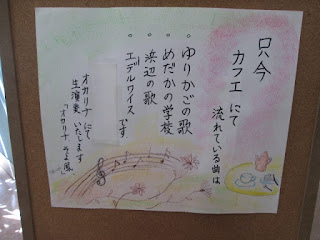 只今
カフェ にて
流れている曲は
・ゆりかごの歌
・めだかの学校
・浜辺の歌
・エデルワイス です
オカリナ にて
生演奏 いたします
「オカリナ そよ風」